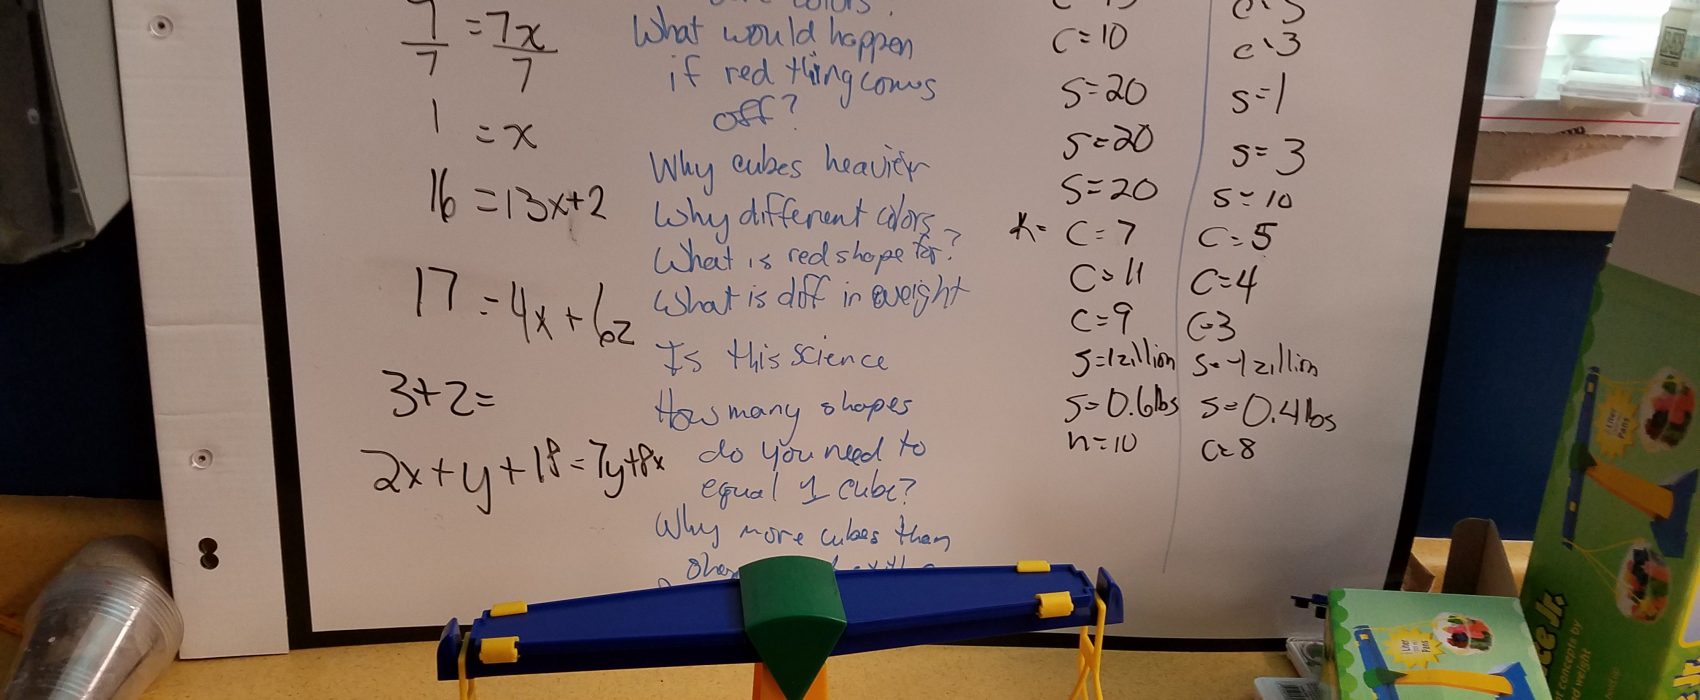 7 = 7x
7 7
1 = x
16 = 13x+2
17 = 4x + 62
3+2=
2x+y+18=7y+8x
colors?
What would happen
if red thing comes
off?
Why cubes heavier
Why different colors
What is red shape for?
What is diff in weight
Is this science
How many shapes
do you need to
equal 1 cube?
Why more cubes than
C=10
S=20
S=20
S=20
C=7
C=11
C=9
S=1zillion
S=0.6lbs
n=10
C=3
S=1
S=3
S=10
C=5
C=4
C=3
S=-1zillion
S=0.4lbs
C=8
ce Jr.
concepts by
weight